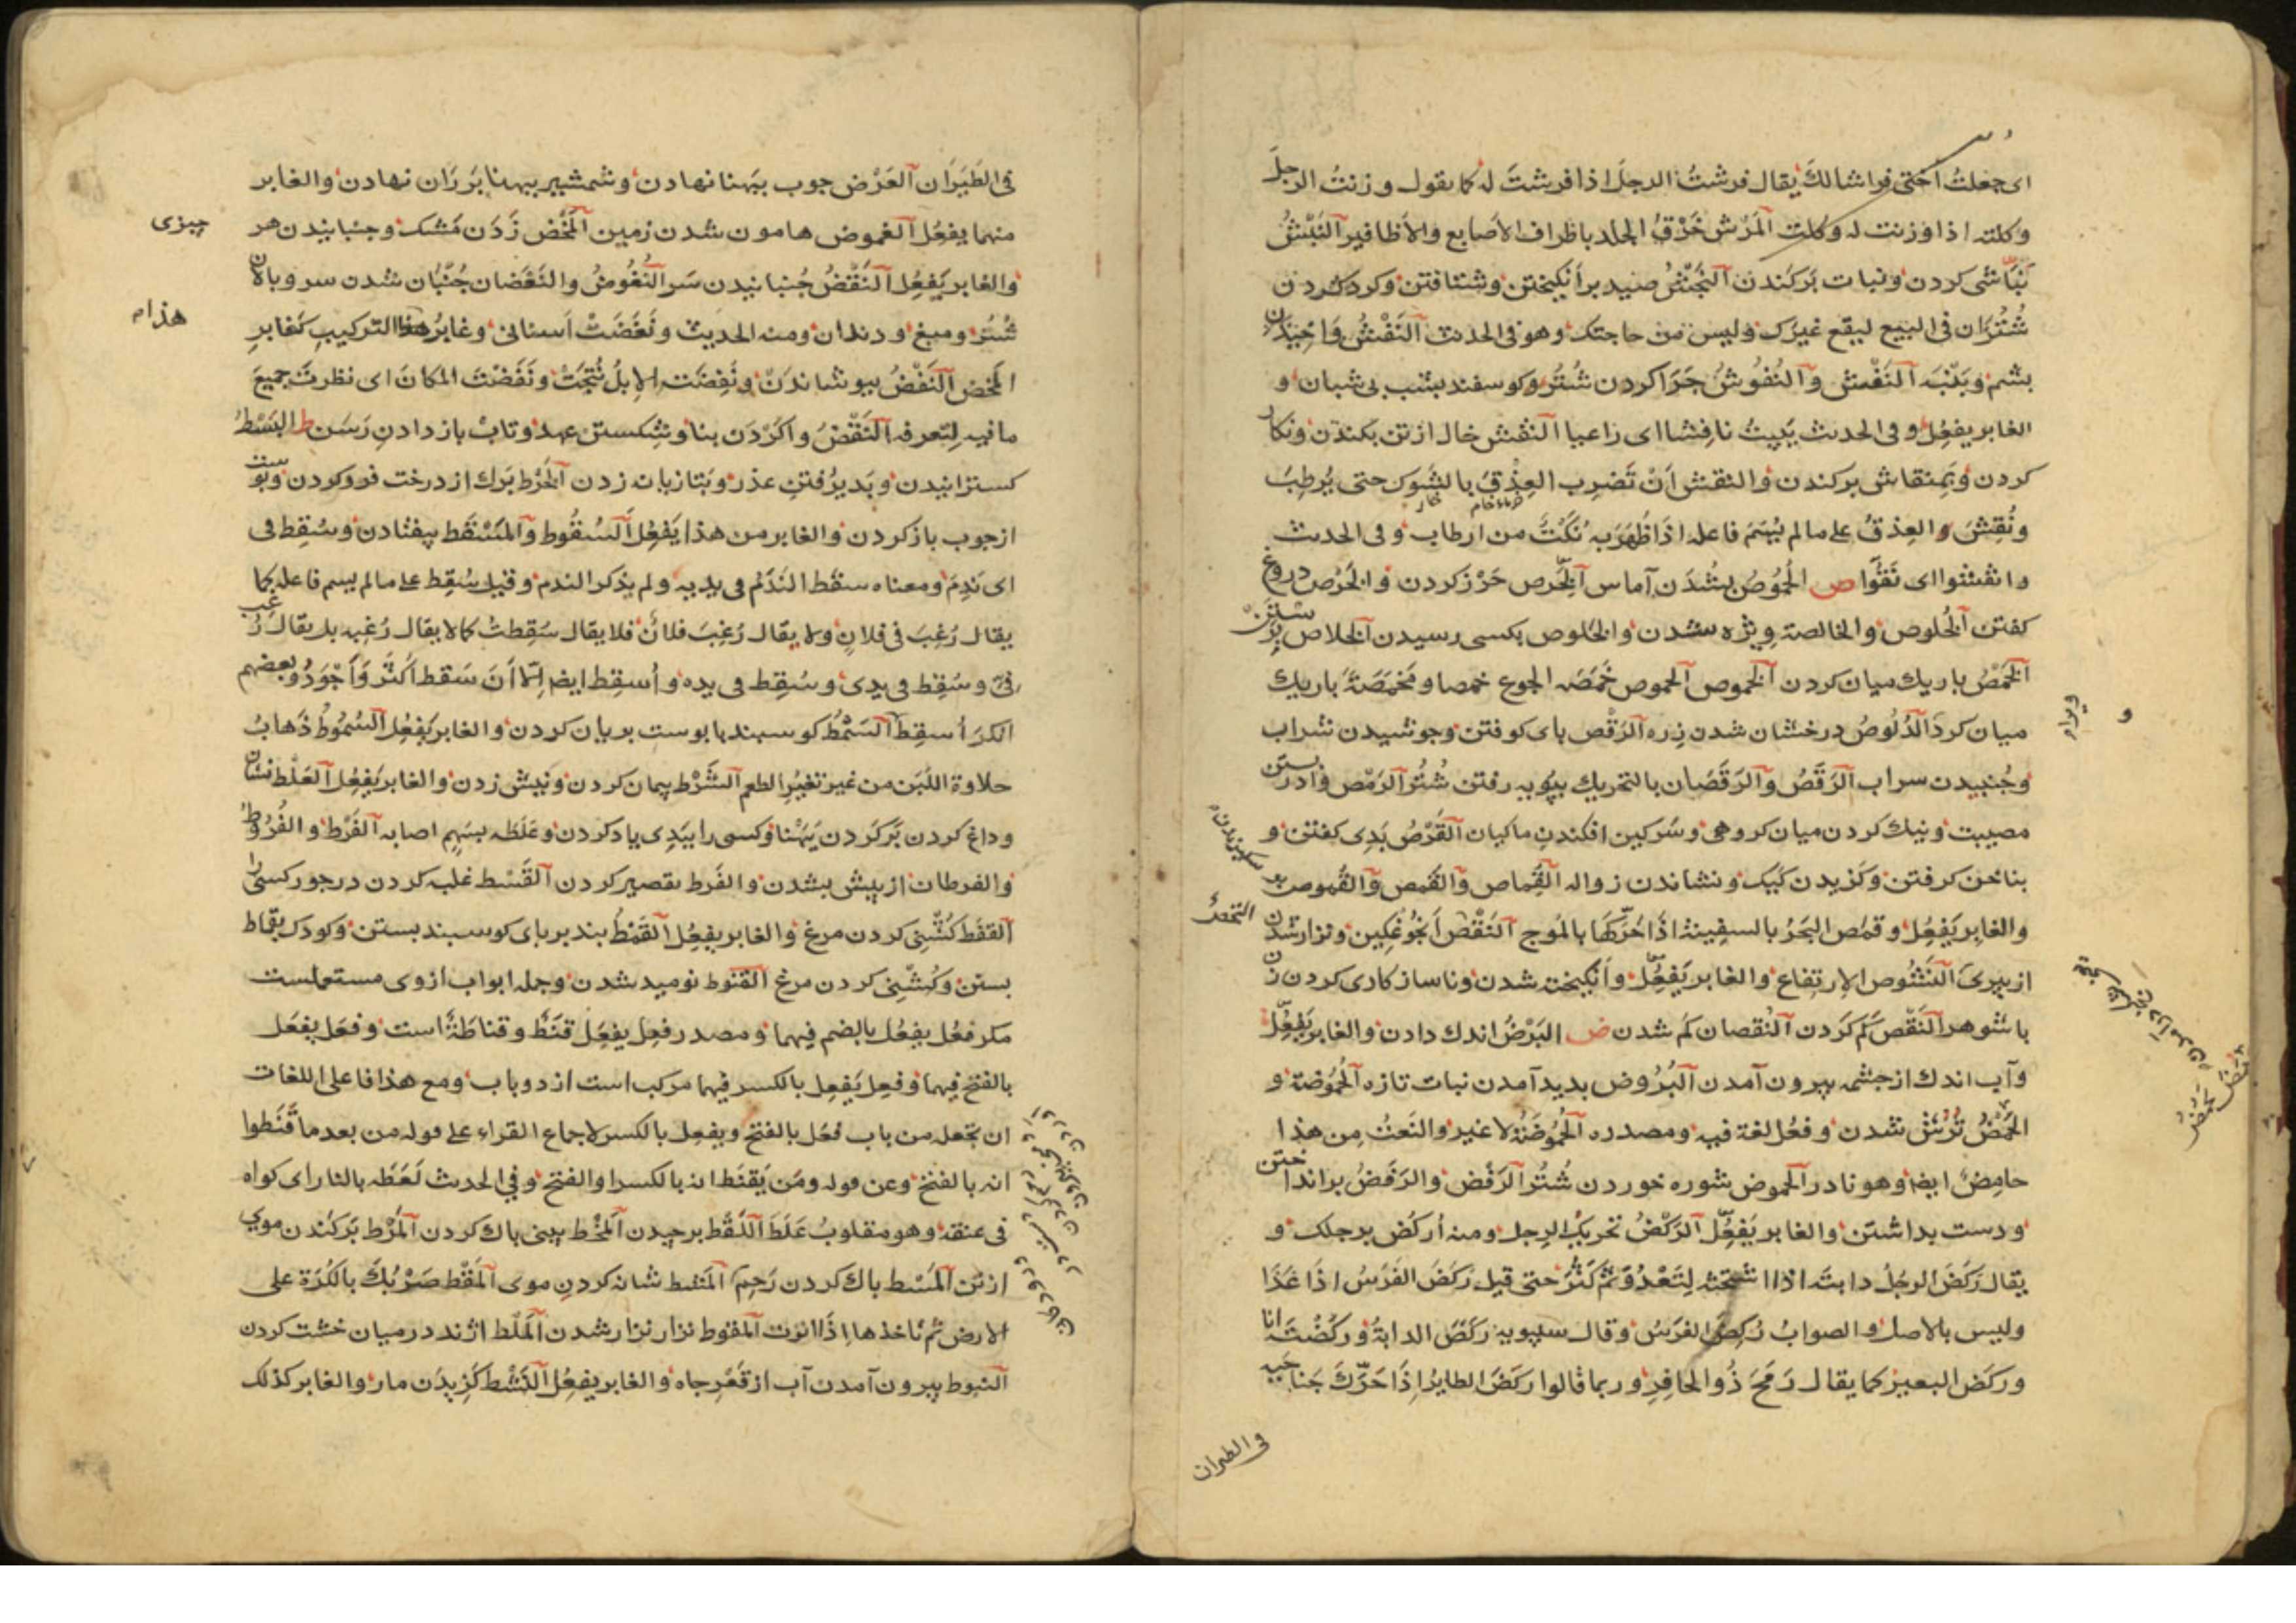 ای جعلتُ اختی فراشا لكَ یقال فرشتُ الرجلَ اذا فرشتَ له كما یقول وزنتُ الرجلَ
وكلته اذا وزنت له وكلت المَرْش خَرْقُ الجلد باطراف الاصابع والاظافیر النَبْشُ
نَبّاشی كردن ونبات بَركَندن النَجْشُ صید برانكیختن وشتافتن وكرد كردن
شُتُران فی البیع لیقع غیرك ولیس من حاجتك وهو فی الحدیث النَفْشُ واخیدن
بشم وپنبه النَفْش والنُفُوشُ چَرا كردن شُتُر وكوسفند بشب بی شبان و
الغابر یفعِل وفی الحدیث یَبِیتُ نافِشا ای راعیا النَقْش خال از تن بكندن ونكار
كردن وبِمنقاش بركندن والنقش اَنْ تَضرِب العِذْقَ بالشوك حتی یُرطِبَ
خرماء خام خار
ونُقِشَ العِذقُ علی مالم یُسَمَ فاعله اذا ظَهَرَ به نُكَتٌ من ارطاب وفی الحدیث
وانقشوا ای نَقُّوا ص الحُمُوصُ بشدن آماس الخَرص حَزْر كردن والخَرْص دروغ
كفتن الخُلوص والخالصة ویژه شدن والخلوص بكسی رسیدن الخلاص بِرَستن
الخَمْصُ باریك میان كردن الخموص الحموص خَمَصَه الجوع خمصا ومَخمَصَةً باریك
میان كرد الدُلُوصُ درخشان شدن زره الرَقْص پای كوفتن وجوشیدن شراب
وجُنبیدن سراب الرَقَصُ والرَقَصَان بالتحریك بپویه رفتن شُتُر الرَمْص وادرستن
مصیبت ونیك كردن میان كروهی وسَركین افكندنِ ماكیان القَرْصُ بَدِی كفتن و
بناخن كرفتن وكزیدن كَیك ونشاندن زواله القُِماص والقَمص والقُموص
والغابر یَفعِل وقمَصَ البَحرُ بالسفینة اذا حَرَّكَها بالموج النَغْص اندوهگین ونزار شدن
از پیری النَشُوص الارتفاع والغابر یَفعِل وانگیخته شدن وناسازكاری كردن زن
با شوهر النَقْص كَم كَردن النُقصان كم شدن ض البَرْضُ اندك دادن والغابر یَفعِل
وآب اندك از چشمه بیرون آمدن البُرُوض پدید آمدن نبات تازه الحُمُوضة و
الحَمْضُ تُرُش شدن وفَعُل لغة فیه ومصدره الحُمُوضَةُ لا غیر والنَعتُ مِن هذا
حامِضٌ ایضا وهو نادر الحموض شوره خوردن شُتُر الرَفْض والرَفَضُ براندا ختن
ودست بداشتن والغابر یَفعِل الرَكْضُ تحریك الرِجل ومنه اُركُض برجلك و
یقال رَكَضَ الرجُلُ دابته اذا استحثه لِتَعْدُوَ ثُمَّ كَثُرَ حتی قیل رَكَضَ الفَرَسُ اذا غَدَا
ولیس بالاصل والصوابُ رُكِضَ الفرَسُ وقال سیبویه رَكَضَ الدابةُ ورَكَضْتُه انا
وركَضَ البعیرُ كما یقال رَمَحَ ذُوالحافِرِ وربما قالوا ركَضَ الطایرُ اِذَا حَرَّكَ جَناحَیه
فی الطیران
التحمك
و
فی الطَیَرَان العَرْض چوب بپَهنا نهادن وشمشیر بپهنا بَر رَان نهادن والغابر
منهما یفعُل الغموض هامون شدن زمین المَخْض زَدَن مَشك وجنبانیدن هر
چیزی
والغابر یَفعِل النَغْضُ جُنبانیدن سَر النُغُوضُ والنَغَضَان جُنبان شدن سر وپالان
شُتُر ومیغ ودندان ومنه الحدیث ونَغَضَتْ اَسنانی وغابرُ هذا التركیبِ كَغابرِ
هذام
المَخض النَفْضُ بیوشاندَنْ ونَفِضَت الاِبلُ نُتِجَتْ ونَفَضْتَ المكانَ ای نظرتَ جمیعَ
ما فیه لِتَعرفه النَقْضُ واكَرْدَن بنا وشِكستن عهد وتابْ باز دادنِ رَسَن ط البَسْطُ
كسترانیدن وپَدیرُفتنِ عذر وبَتازیانه زدن الخَرْط بَرك از درخت فروكردن وپوست
از چوب باز كردن والغابر من هذا یَفعُِل السُقُوط والمَسْقَط بیفتادن وسُقِط فی
ای نَدِمَ ومعناه سقَط النَدَمُ فی یدیه ولم یذكر الندم وقیل سُقِط علی مالم یسم فاعله كما
یقال رُغِبَ فی فلانٍ ولا یقال رُغِبَ فلانٌ فلا یقال سُقِطتُ كما لا یقال رُغِبه بل یقال رُغِب
فیّ وسُقِط فی یدی وسُقِط فی یده واُسقِط ایضا اِلّا اَنَّ سَقط اَكثَر واَجْوَد وبعضهم
انكر اُسقِط السَمْطُ كوسپند با پوست بریان كردن والغابر یَفعُِل السُمُوطُ ذَهابُ
حلاوة اللبَن من غیر تغیُّر الطعم الشَرْط پیمان كردن ونیش زدن والغابر یَفعُِل العَلْط نشان
وداغ كردن بَر كَردن پَهْنا وكسی را ببَدِی یاد كردن وعَلَطَه بسَهم اصابه الفَرْط والفُرُوطُ
والفرطان از پیش بشدن والفَرط تقصیر كردن القَسْط غلبه كردن در جور كسی را
القفط كُشْنِی كردن مرغ والغابر یفعُِل القَمْطُ بند بر پای كوسپند بستن وكودك بقِماط
بستن وكُشْنِی كردن مرغ القنوط نومید شدن وجمله ابواب از وی مستعملست
مكر فعُل یفعُل بالضم فیهما ومصدر فعِل یفعَل قَنَطٌ وقناطَةٌ است وفعَل یفعَل
بالفتح فیهما وفعِل یَفعِل بالكسر فیهما مركب است از دو باب ومع هذا فاعلی اللغات
ان تجعله من باب فَعَل بالفتح ویفعِل بالكسر لاجماع القراء علی قوله من بعد ما قَنَطُوا
انه بالفتح وعن قوله ومَن یَقنَط انه بالكسر او الفتح وفی الحدیث لَعَطَه بالنار ای كواه
فی عنقه وهو مقلوبُ عَلَطَ اللَقْط برچیدن المَخْط بینی پاك كردن المَرْط بَركَندن موی
از تن المَسْط پاك كردن رَحِم المَشط شانه كردنِ موی المَقْط ضَرْبُكَ بالكُرَة علی
الارض ثم تاخذها اِذَا نزت المقوط نزار نزار شدن المَلْط اژند در میان خشت كردن
النبوط بیرون آمدن آب از قَعْر چاه والغابر یفعُِل النَشْط كَزیدَن مار والغابر كذلك